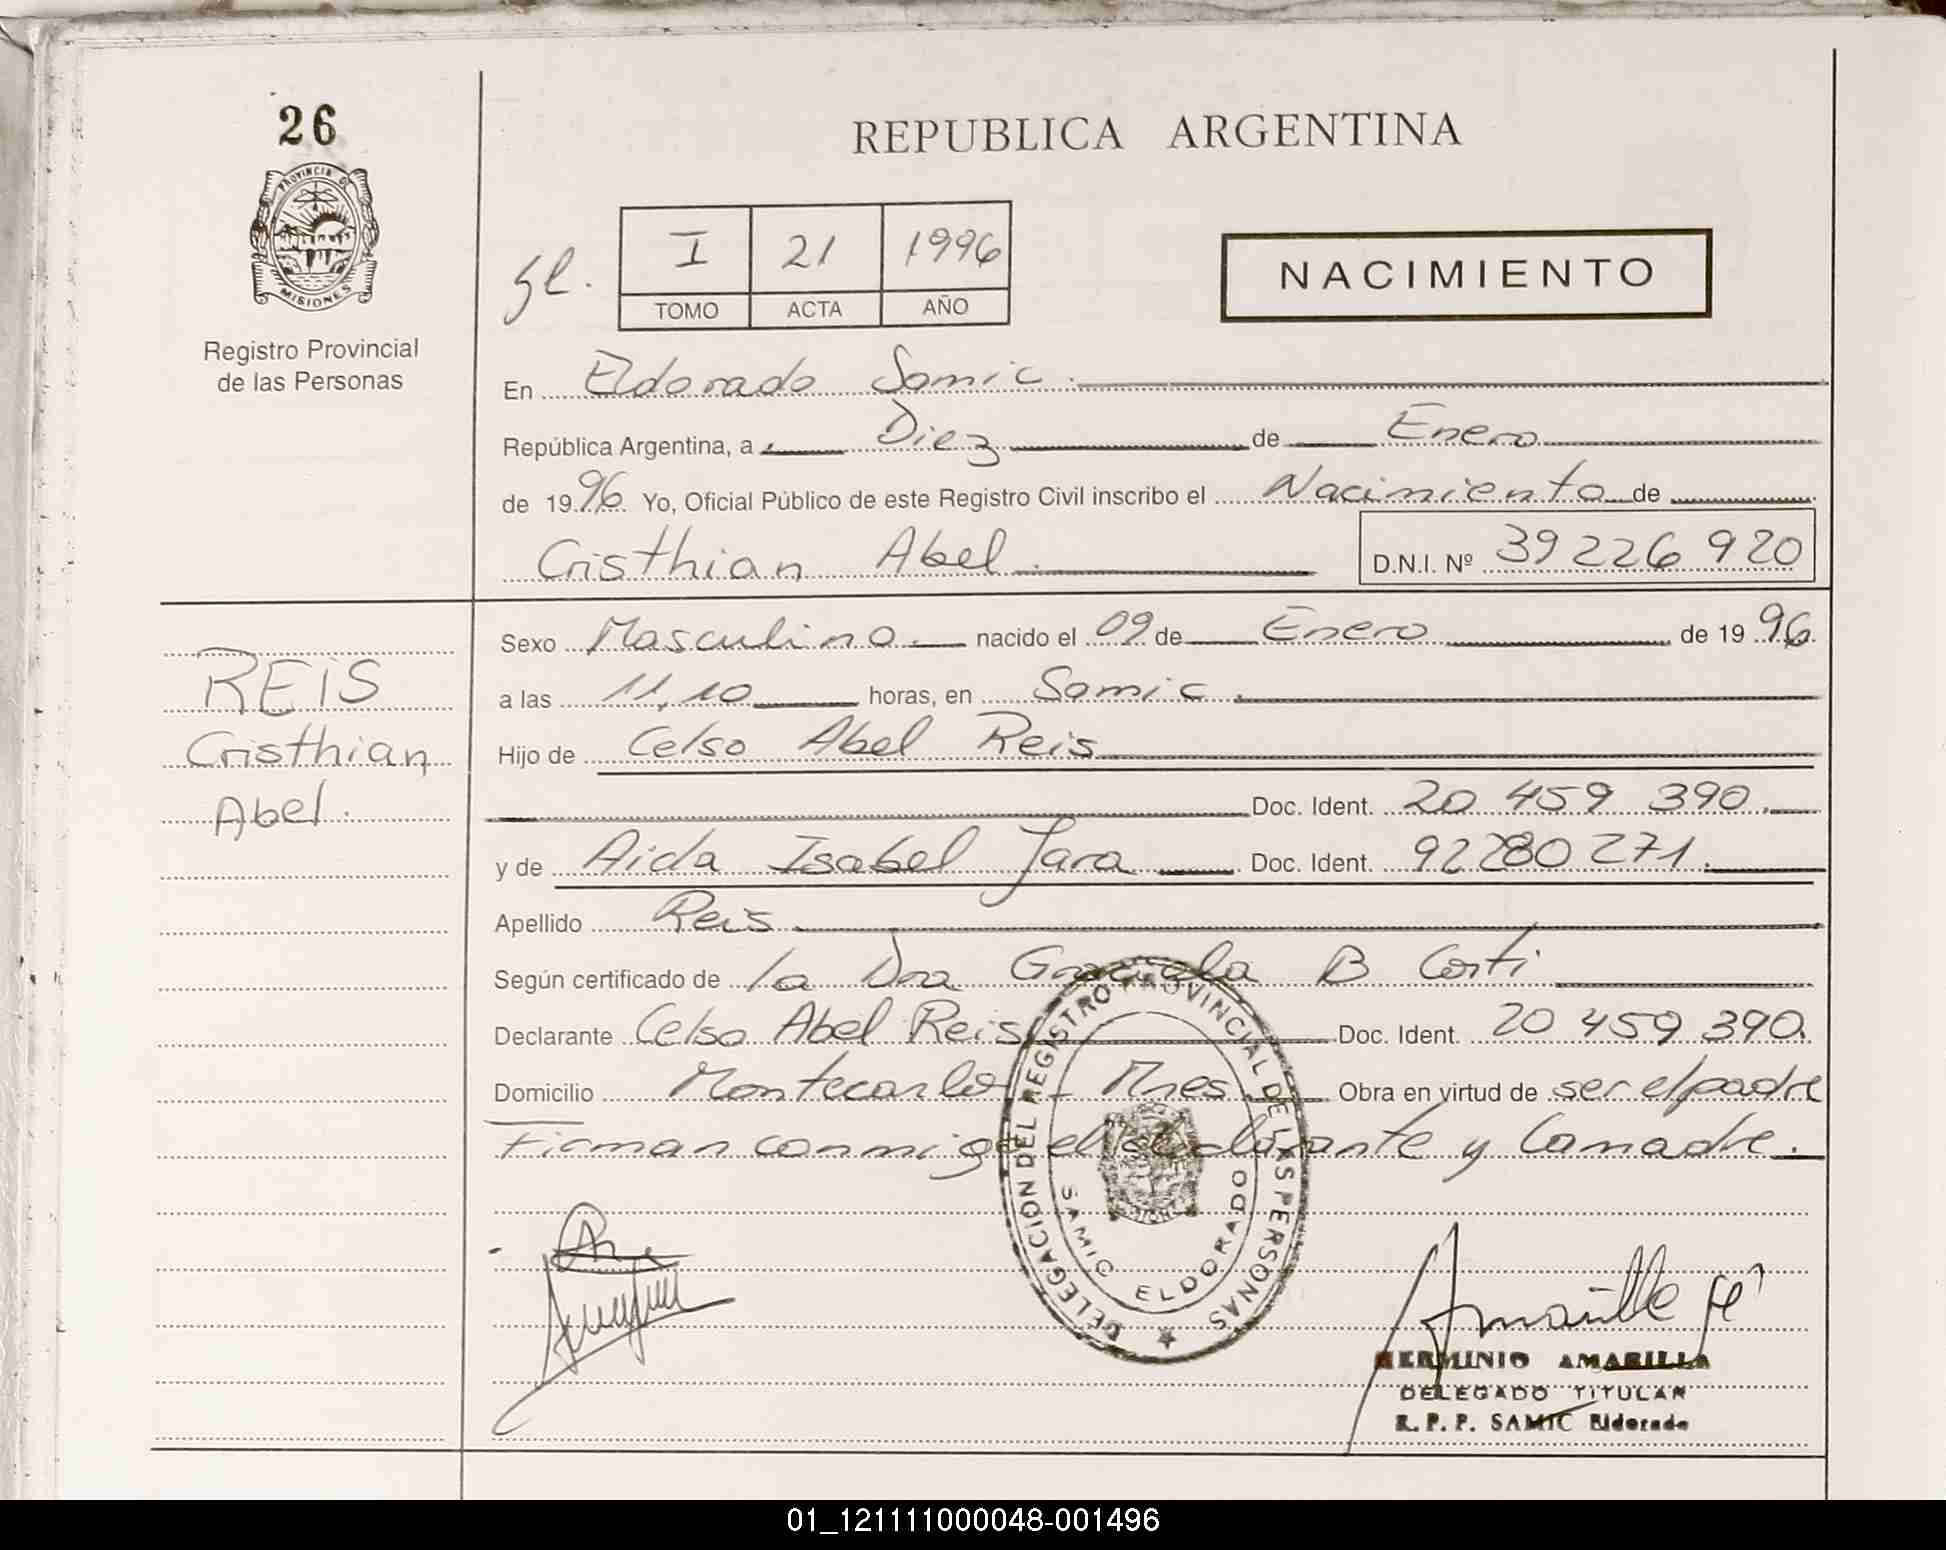 26
PROVINCIA DE
MISIONES
Registro Provincial
de las Personas
REPUBLICA ARGENTINA
I 21 1996
TOMO ACTA AÑO
NACIMIENTO
En Eldorado Samic
República Argentina, a Diez de Enero
de 1996 Yo, Oficial Público de este Registro Civil inscribo el Nacimiento de
Cristhian Abel D.N.I. Nº 39 226 920
REIS
Cristhian
Abel.
Sexo Masculino nacido el 09 de Enero de 1996.
a las 11,10 horas, en Samic.
Hijo de Celso Abel Reis
Doc. Ident. 20 459 390.
y de Aida Isabel Jara Doc. Ident. 92280271.
Apellido Reis
Según certificado de la Dra Graciela B Corti
Declarante Celso Abel Reis Doc. Ident. 20 459 390.
Domicilio Montecarlo - Mnes Obra en virtud de ser el padre
Firman conmigo el declarante y la madre.
DELEGACION DEL REGISTRO PROVINCIAL DE LAS PERSONAS
SAMIC ELDORADO
HERMINIO AMARILLA
DELEGADO TITULAR
R. P. P. SAMIC Eldorado
01_121111000048-001496